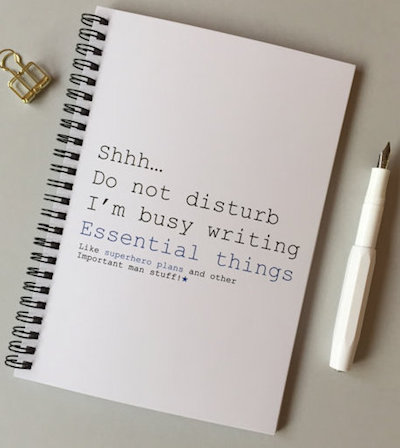 Shhh…
Do not disturb
I'm busy writing
Essential things
Like superhero plans and other
Important man stuff!★